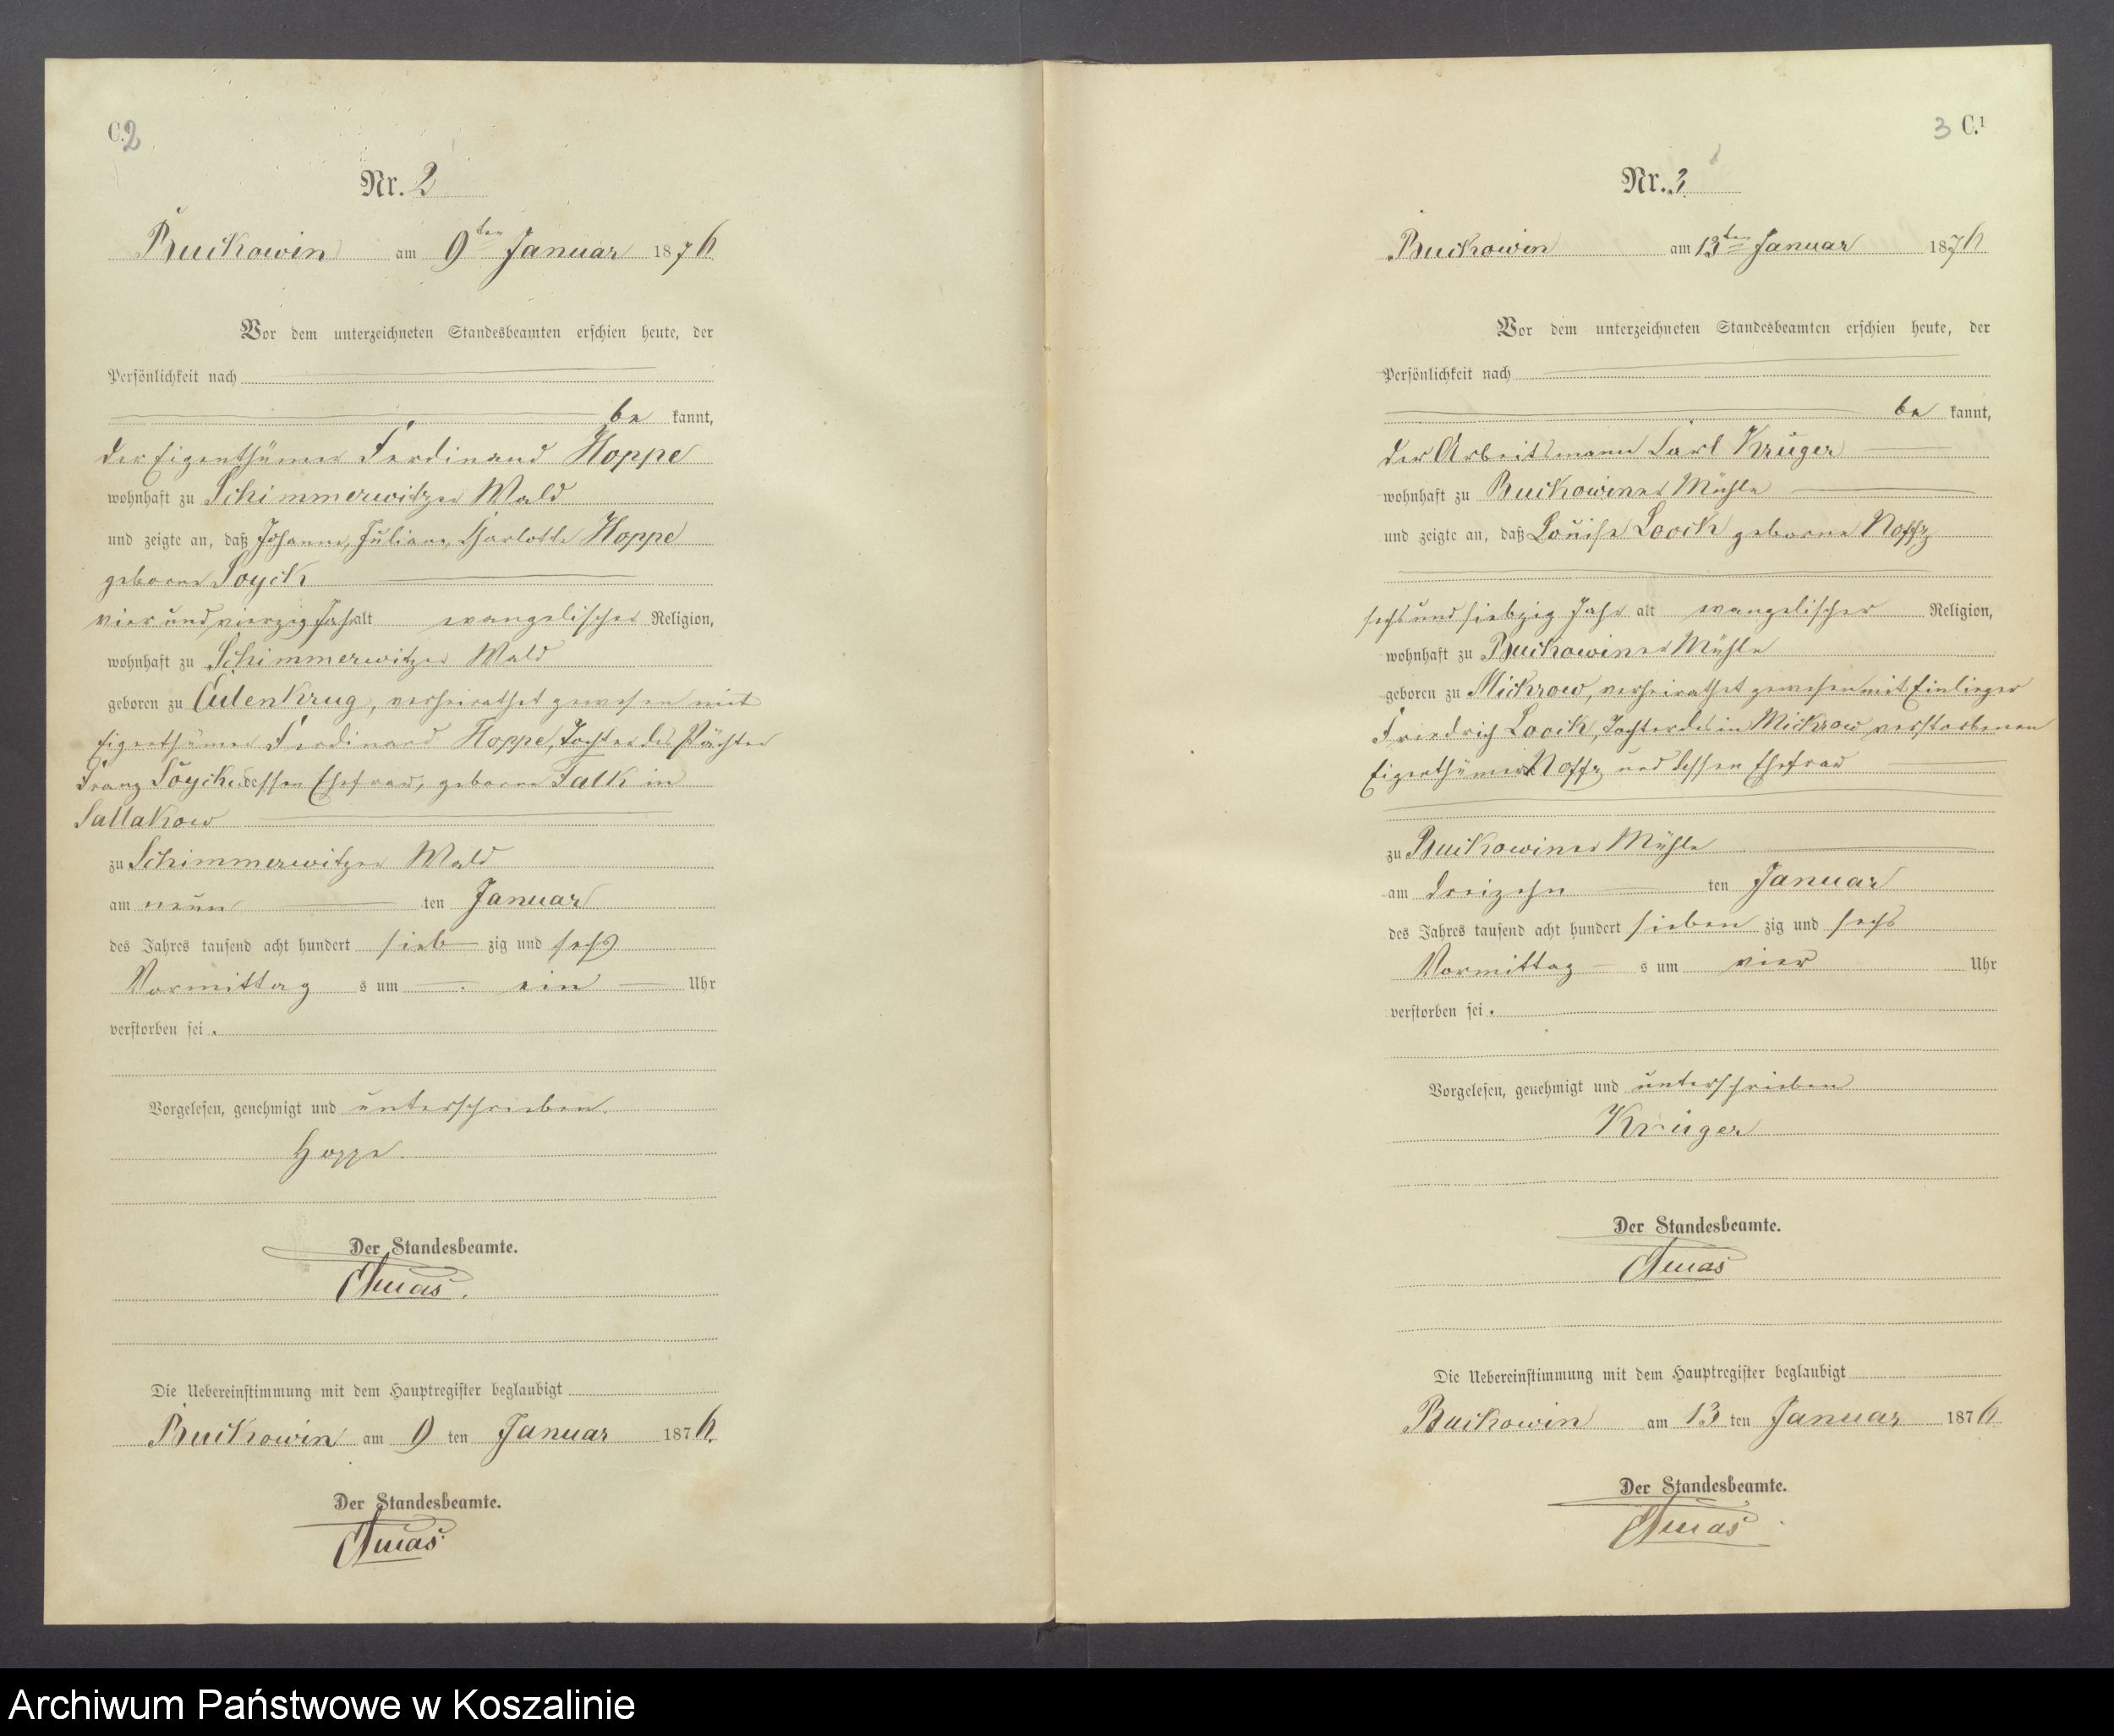 C. 2
Nr. 2
Buckowin am 9ten Januar 1876
Vor dem unterzeichneten Standesbeamten erschien heute, der
Persönlichkeit nach
be kannt,
der Eigenthümer Ferdinand Hoppe
wohnhaft zu Schimmerwitzer Wald
und zeigte an, daß Johanne, Juliane, Charlotte Hoppe
geborne Soyck
vier und vierzig Jahr alt evangelischer Religion,
wohnhaft zu Schimmerwitzer Wald
geboren zu Eulenkrug, verheirathet gewesen mit
Eigenthümer Ferdinand Hoppe, Tochter des Pächter
Franz Soyck dessen Ehefrau, geborne Falk in
Sallakow
zu Schimmerwitzer Wald
am neun ten Januar
des Jahres tausend acht hundert sieb zig und sechs
Vormittag s um ein Uhr
verstorben sei.
Vorgelesen, genehmigt und unterschrieben.
Hoppe.
Der Standesbeamte.
Die Uebereinstimmung mit dem Hauptregister beglaubigt
Buckowin am 9 ten Januar 1876.
Der Standesbeamte.
3 C.¹
Nr. 3
Buckowin am 13ten Januar 1876
Vor dem unterzeichneten Standesbeamten erschien heute, der
Persönlichkeit nach
be kannt,
der Arbeitsmann Carl Krüger
wohnhaft zu Buckowiner Mühle
und zeigte an, daß Louise Loock geborne Noffz
sechs und siebzig Jahr alt evangelischer Religion,
wohnhaft zu Buckowiner Mühle
geboren zu Mickrow, verheirathet gewesen mit Einlieger
Friedrich Loock, Tochter des in Mickrow verstorbenen
Eigenthümer Noffz und dessen Ehefrau
zu Buckowiner Mühle
am dreizehn ten Januar
des Jahres tausend acht hundert sieben zig und sechs
Vormittag s um vier Uhr
verstorben sei.
Vorgelesen, genehmigt und unterschrieben
Krüger
Der Standesbeamte.
Die Uebereinstimmung mit dem Hauptregister beglaubigt
Buckowin am 13 ten Januar 1876
Der Standesbeamte.
Archiwum Państwowe w Koszalinie